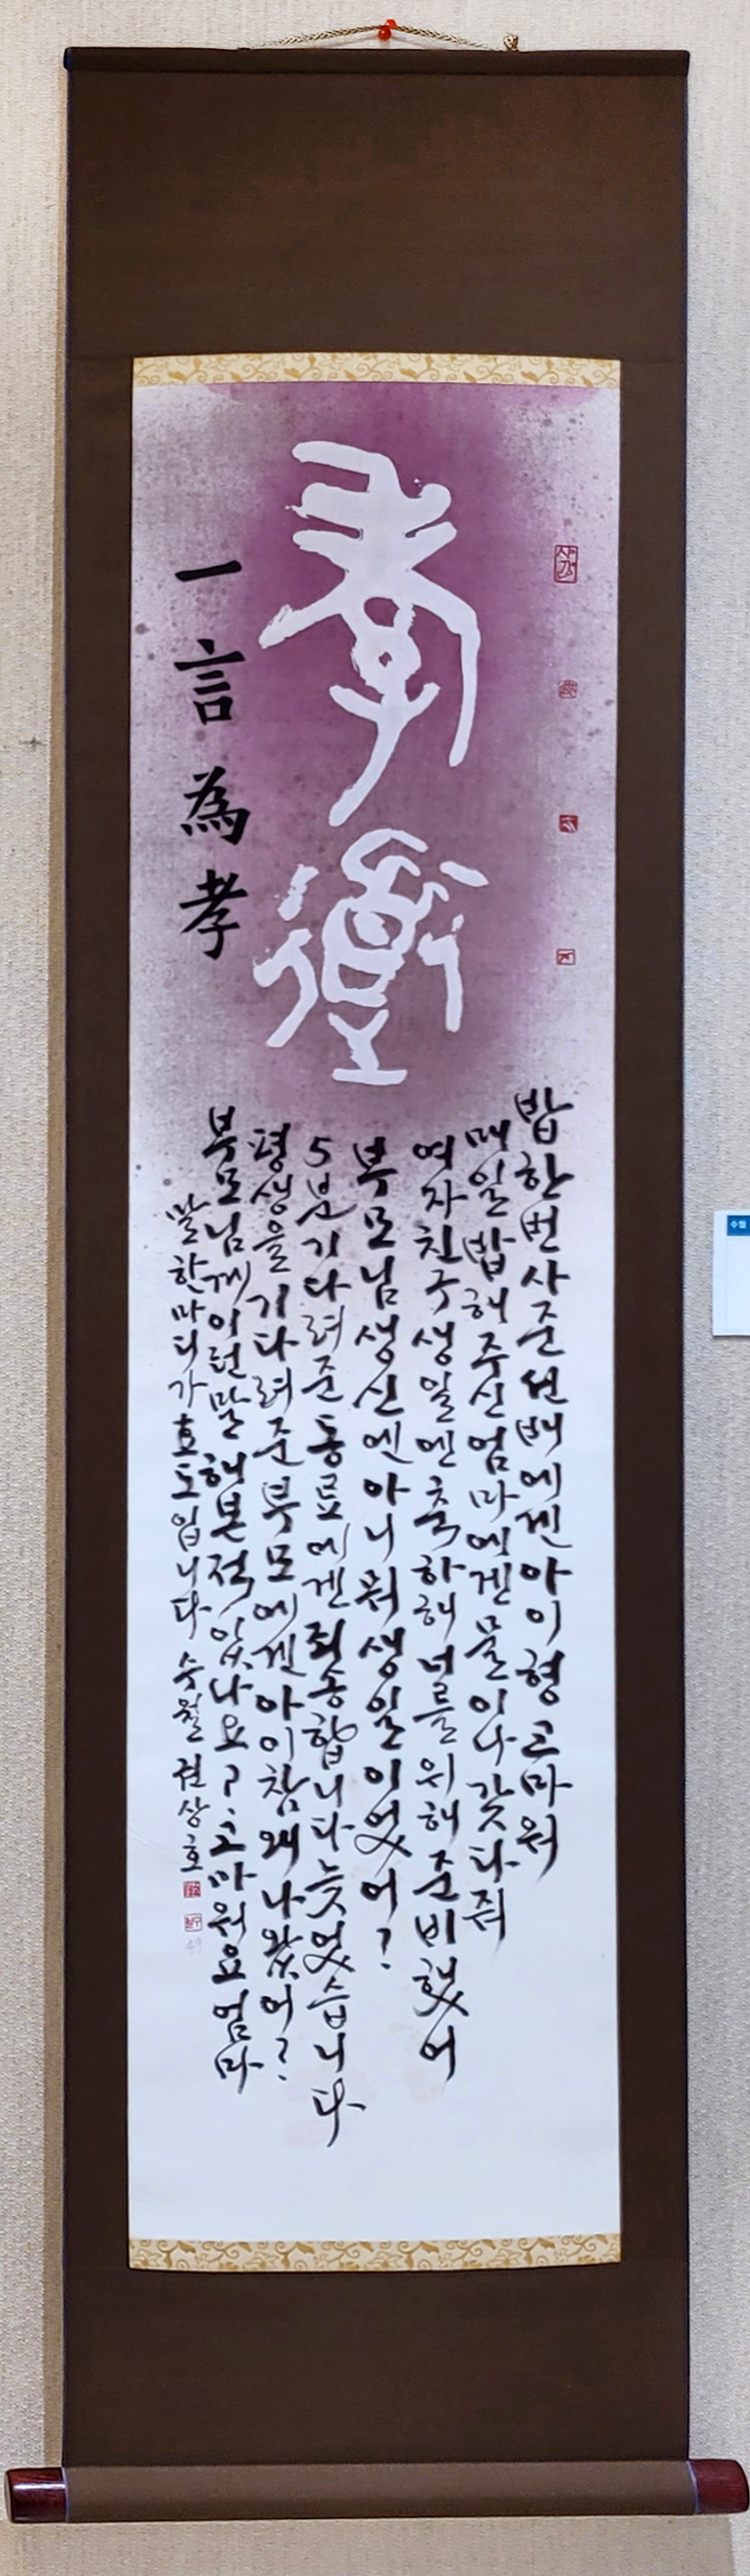 孝道
一言為孝
밥한번사준선배에겐아이형고마워
매일밥해주신엄마에겐물이나갖다줘
여자친구생일엔축하해너를위해준비했어
부모님생신엔아니뭐생일이었어?
5분기다려준동료에겐죄송합니다늦었습니다
평생을기다려준부모에겐아이참왜나왔어?
부모님께이런말해본적있나요?고마워요엄마
말한마디가효도입니다 수월 권상호